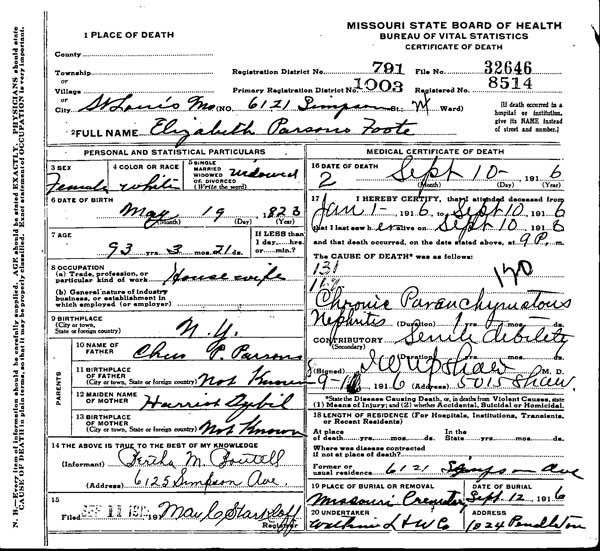 MISSOURI STATE BOARD OF HEALTH
BUREAU OF VITAL STATISTICS
CERTIFICATE OF DEATH
1 PLACE OF DEATH
County
Township
or
Village
or
City St Louis Mo (NO. 6121 Simpson St. Ward)
Registration District No. 791 File No. 32646
Primary Registration District No. 1003 Registered No. 8514
(If death occurred in a hospital or institution, give its NAME instead of street and number.)
2 FULL NAME Elizabeth Parsons Foote
PERSONAL AND STATISTICAL PARTICULARS
3 SEX Female
4 COLOR OR RACE white
5 SINGLE MARRIED WIDOWED OR DIVORCED (Write the word) widowed
6 DATE OF BIRTH
May 19 1823
(Month) (Day) (Year)
7 AGE
93 yrs. 3 mos. 21 ds.
If LESS than 1 day,....hrs. or.....min.?
8 OCCUPATION
(a) Trade, profession, or particular kind of work Housewife
(b) General nature of industry business, or establishment in which employed (or employer)
9 BIRTHPLACE
(City or town, State or foreign country) N.Y.
PARENTS
10 NAME OF FATHER Chas P. Parsons
11 BIRTHPLACE OF FATHER
(City or town, State or foreign country) Not Known
12 MAIDEN NAME OF MOTHER Harriet
13 BIRTHPLACE OF MOTHER
(City or town, State or foreign country) Not Known
14 THE ABOVE IS TRUE TO THE BEST OF MY KNOWLEDGE
(Informant) Bertha M.
(Address) 6125 Simpson Ave.
15
Filed SEP 11 191 May C Starkloff
Registrar
MEDICAL CERTIFICATE OF DEATH
16 DATE OF DEATH
2 Sept 10 - 1916
(Month) (Day) (Year)
17 I HEREBY CERTIFY, that I attended deceased from
Jan 1 - 1916, to Sept 10, 1916
that I last saw her alive on Sept 10 1916
and that death occurred, on the date stated above, at 9 P. m.
The CAUSE OF DEATH* was as follows:
131
120
Chronic Paranchymatous
Nephritis (Duration) 1 yrs. mos. ds.
CONTRIBUTORY Senile debility
(Secondary)
(Duration) yrs. mos. ds.
(Signed) Upshaw M. D.
1916 (Address) 5015 Shaw.
*State the Disease Causing Death, or, in deaths from Violent Causes, state
(1) Means of Injury; and (2) whether Accidental, Suicidal or Homicidal.
18 LENGTH OF RESIDENCE (For Hospitals, Institutions, Transients, or Recent Residents)
At place of death yrs. mos. ds. In the State yrs. mos. ds.
Where was disease contracted
if not at place of death?
Former or
usual residence 6121 Simpson Ave
19 PLACE OF BURIAL OR REMOVAL DATE OF BURIAL
Missouri Crematory Sept. 12, 1916
20 UNDERTAKER ADDRESS
1024 Pendleton